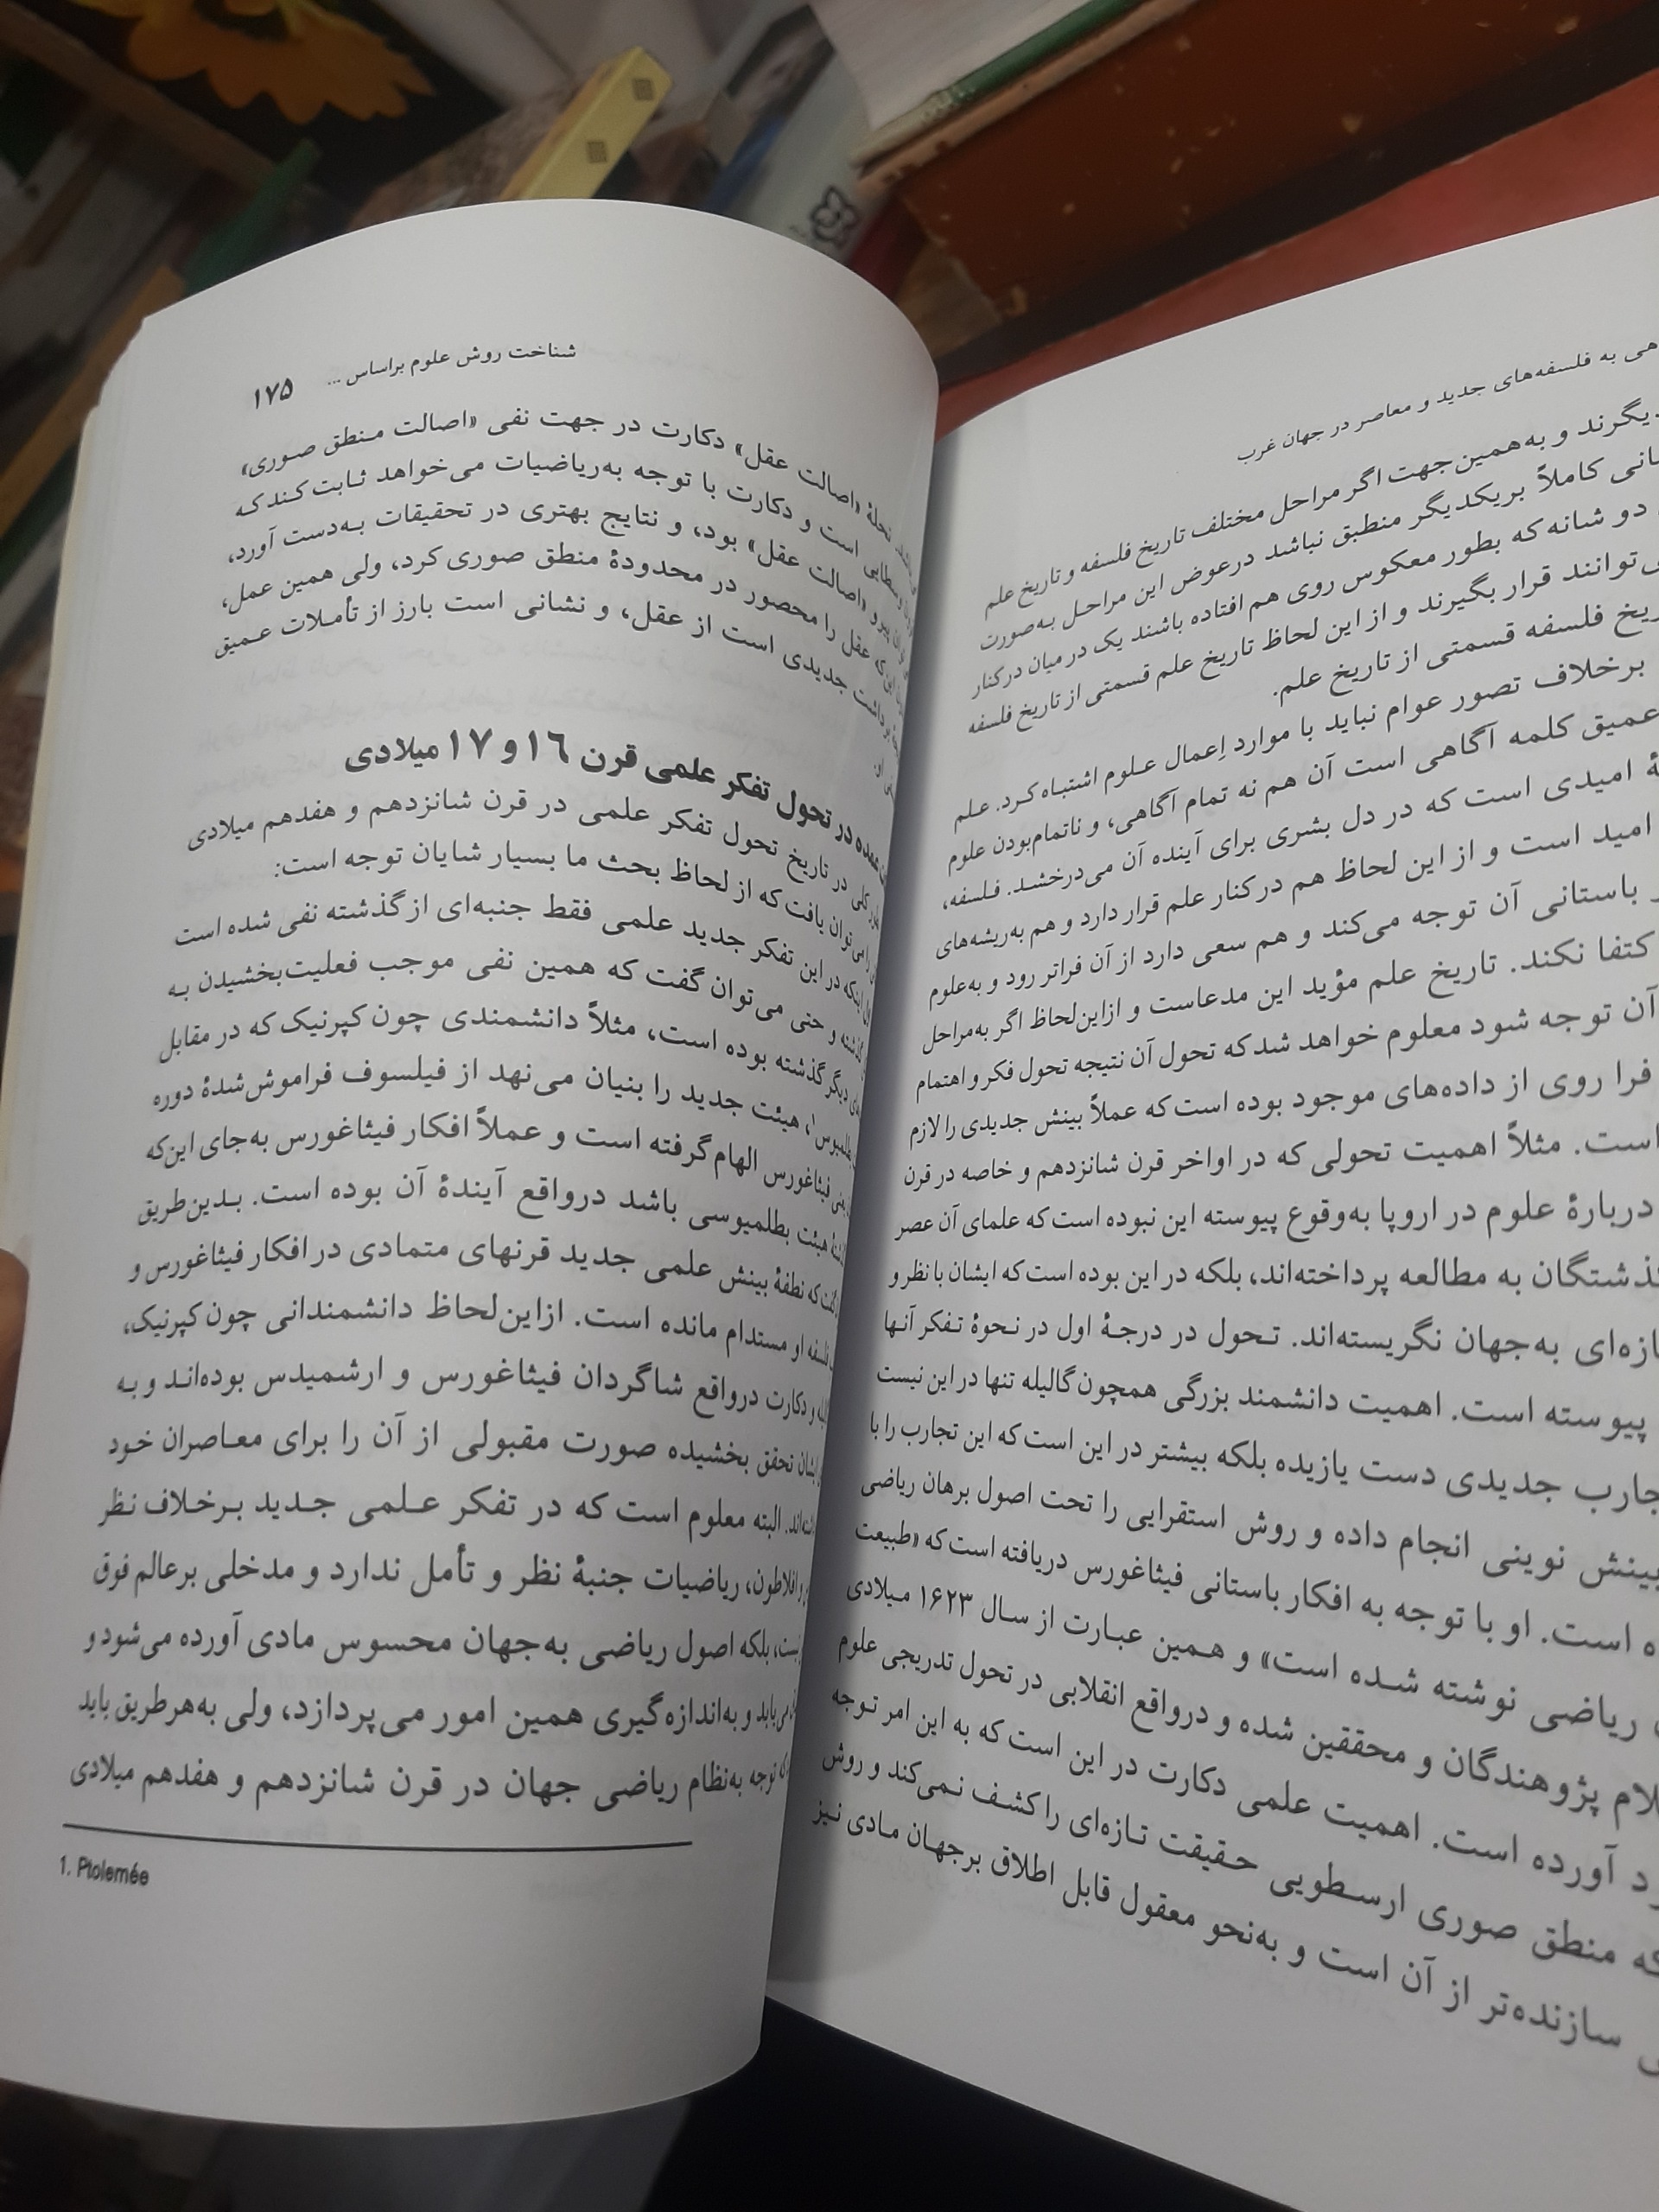 به فلسفه‌های جدید و معاصر در جهان غرب
و به‌همین‌جهت اگر مراحل مختلف تاریخ فلسفه و تاریخ علم
کاملاً بریکدیگر منطبق نباشد درعوض این مراحل به‌صورت
دو شانه که بطور معکوس روی هم افتاده باشند یک در میان درکنار
قرار بگیرند و از این لحاظ تاریخ علم قسمتی از تاریخ فلسفه
فلسفه قسمتی از تاریخ علم.
برخلاف تصور عوام نباید با موارد اِعمال علوم اشتباه کرد. علم
عمیق کلمه آگاهی است آن هم نه تمام آگاهی، و ناتمام‌بودن علوم
امیدی است که در دل بشری برای آینده آن می‌درخشد. فلسفه،
امید است و از این لحاظ هم درکنار علم قرار دارد و هم به‌ریشه‌های
باستانی آن توجه می‌کند و هم سعی دارد از آن فراتر رود و به‌علوم
نکند. تاریخ علم مؤید این مدعاست و ازاین‌لحاظ اگر به‌مراحل
آن توجه شود معلوم خواهد شدکه تحول آن نتیجه تحول فکر و اهتمام
فرا روی از داده‌های موجود بوده است‌که عملاً بینش جدیدی را لازم
است. مثلاً اهمیت تحولی که در اواخر قرن شانزدهم و خاصه در قرن
دربارهٔ علوم در اروپا به‌وقوع پیوسته این نبوده است‌که علمای آن عصر
به مطالعه پرداخته‌اند، بلکه در این بوده است‌که ایشان با نظر و
به‌جهان نگریسته‌اند. تحول در درجهٔ اول در نحوهٔ تفکر آنها
پیوسته است. اهمیت دانشمند بزرگی همچون‌گالیله تنها در این نیست
جدیدی دست یازیده بلکه بیشتر در این است‌که این تجارب را با
بینش نوینی انجام داده و روش استقرایی را تحت اصول برهان ریاضی
است. او با توجه به افکار باستانی فیثاغورس دریافته است‌که «طبیعت
ریاضی نوشته شده است» و همین عبارت از سال ۱۶۲۳ میلادی
پژوهندگان و محققین شده و درواقع انقلابی در تحول تدریجی علوم
آورده است. اهمیت علمی دکارت در این است‌که به این امر توجه
منطق صوری ارسطویی حقیقت تازه‌ای را کشف نمی‌کند و روش
سازنده‌تر از آن است و به‌نحو معقول قابل اطلاق برجهان مادی نیز
شناخت روش علوم براساس ... ۱۷۵
نحلهٔ «اصالت عقل» دکارت در جهت نفی «اصالت منطق صوری»
است و دکارت با توجه به‌ریاضیات می‌خواهد ثابت‌کندکه
پیرو «اصالت عقل» بود، و نتایج بهتری در تحقیقات به‌دست آورد،
عقل را محصور در محدودهٔ منطق صوری کرد، ولی همین عمل،
برداشت جدیدی است از عقل، و نشانی است بارز از تأملات عمیق
او
در تحول تفکر علمی قرن ۱۶ و ۱۷ میلادی
کلی در تاریخ تحول تفکر علمی در قرن شانزدهم و هفدهم میلادی
را می‌توان یافت‌که از لحاظ بحث ما بسیار شایان توجه است:
اینکه در این تفکر جدید علمی فقط جنبه‌ای ازگذشته نفی شده است
و حتی می‌توان گفت که همین نفی موجب فعلیت‌بخشیدن به
دیگر گذشته بوده است، مثلاً دانشمندی چون کپرنیک که در مقابل
بطلمیوس۱، هیئت جدید را بنیان می‌نهد از فیلسوف فراموش‌شدهٔ دوره
فیثاغورس الهام‌گرفته است و عملاً افکار فیثاغورس به‌جای این‌که
هیئت بطلمیوسی باشد درواقع آیندهٔ آن بوده است. بدین‌طریق
که نطفهٔ بینش علمی جدید قرنهای متمادی در افکار فیثاغورس و
فلسفه او مستدام مانده است. ازاین‌لحاظ دانشمندانی چون‌کپرنیک،
و دکارت درواقع شاگردان فیثاغورس و ارشمیدس بوده‌اند و به
تحقق بخشیده صورت مقبولی از آن را برای معاصران خود
البته معلوم است که در تفکر علمی جدید برخلاف نظر
افلاطون، ریاضیات جنبهٔ نظر و تأمل ندارد و مدخلی برعالم فوق
بلکه اصول ریاضی به‌جهان محسوس مادی آورده می‌شود و
و به‌اندازه‌گیری همین امور می‌پردازد، ولی به‌هرطریق باید
توجه به‌نظام ریاضی جهان در قرن شانزدهم و هفدهم میلادی
1. Ptolemée